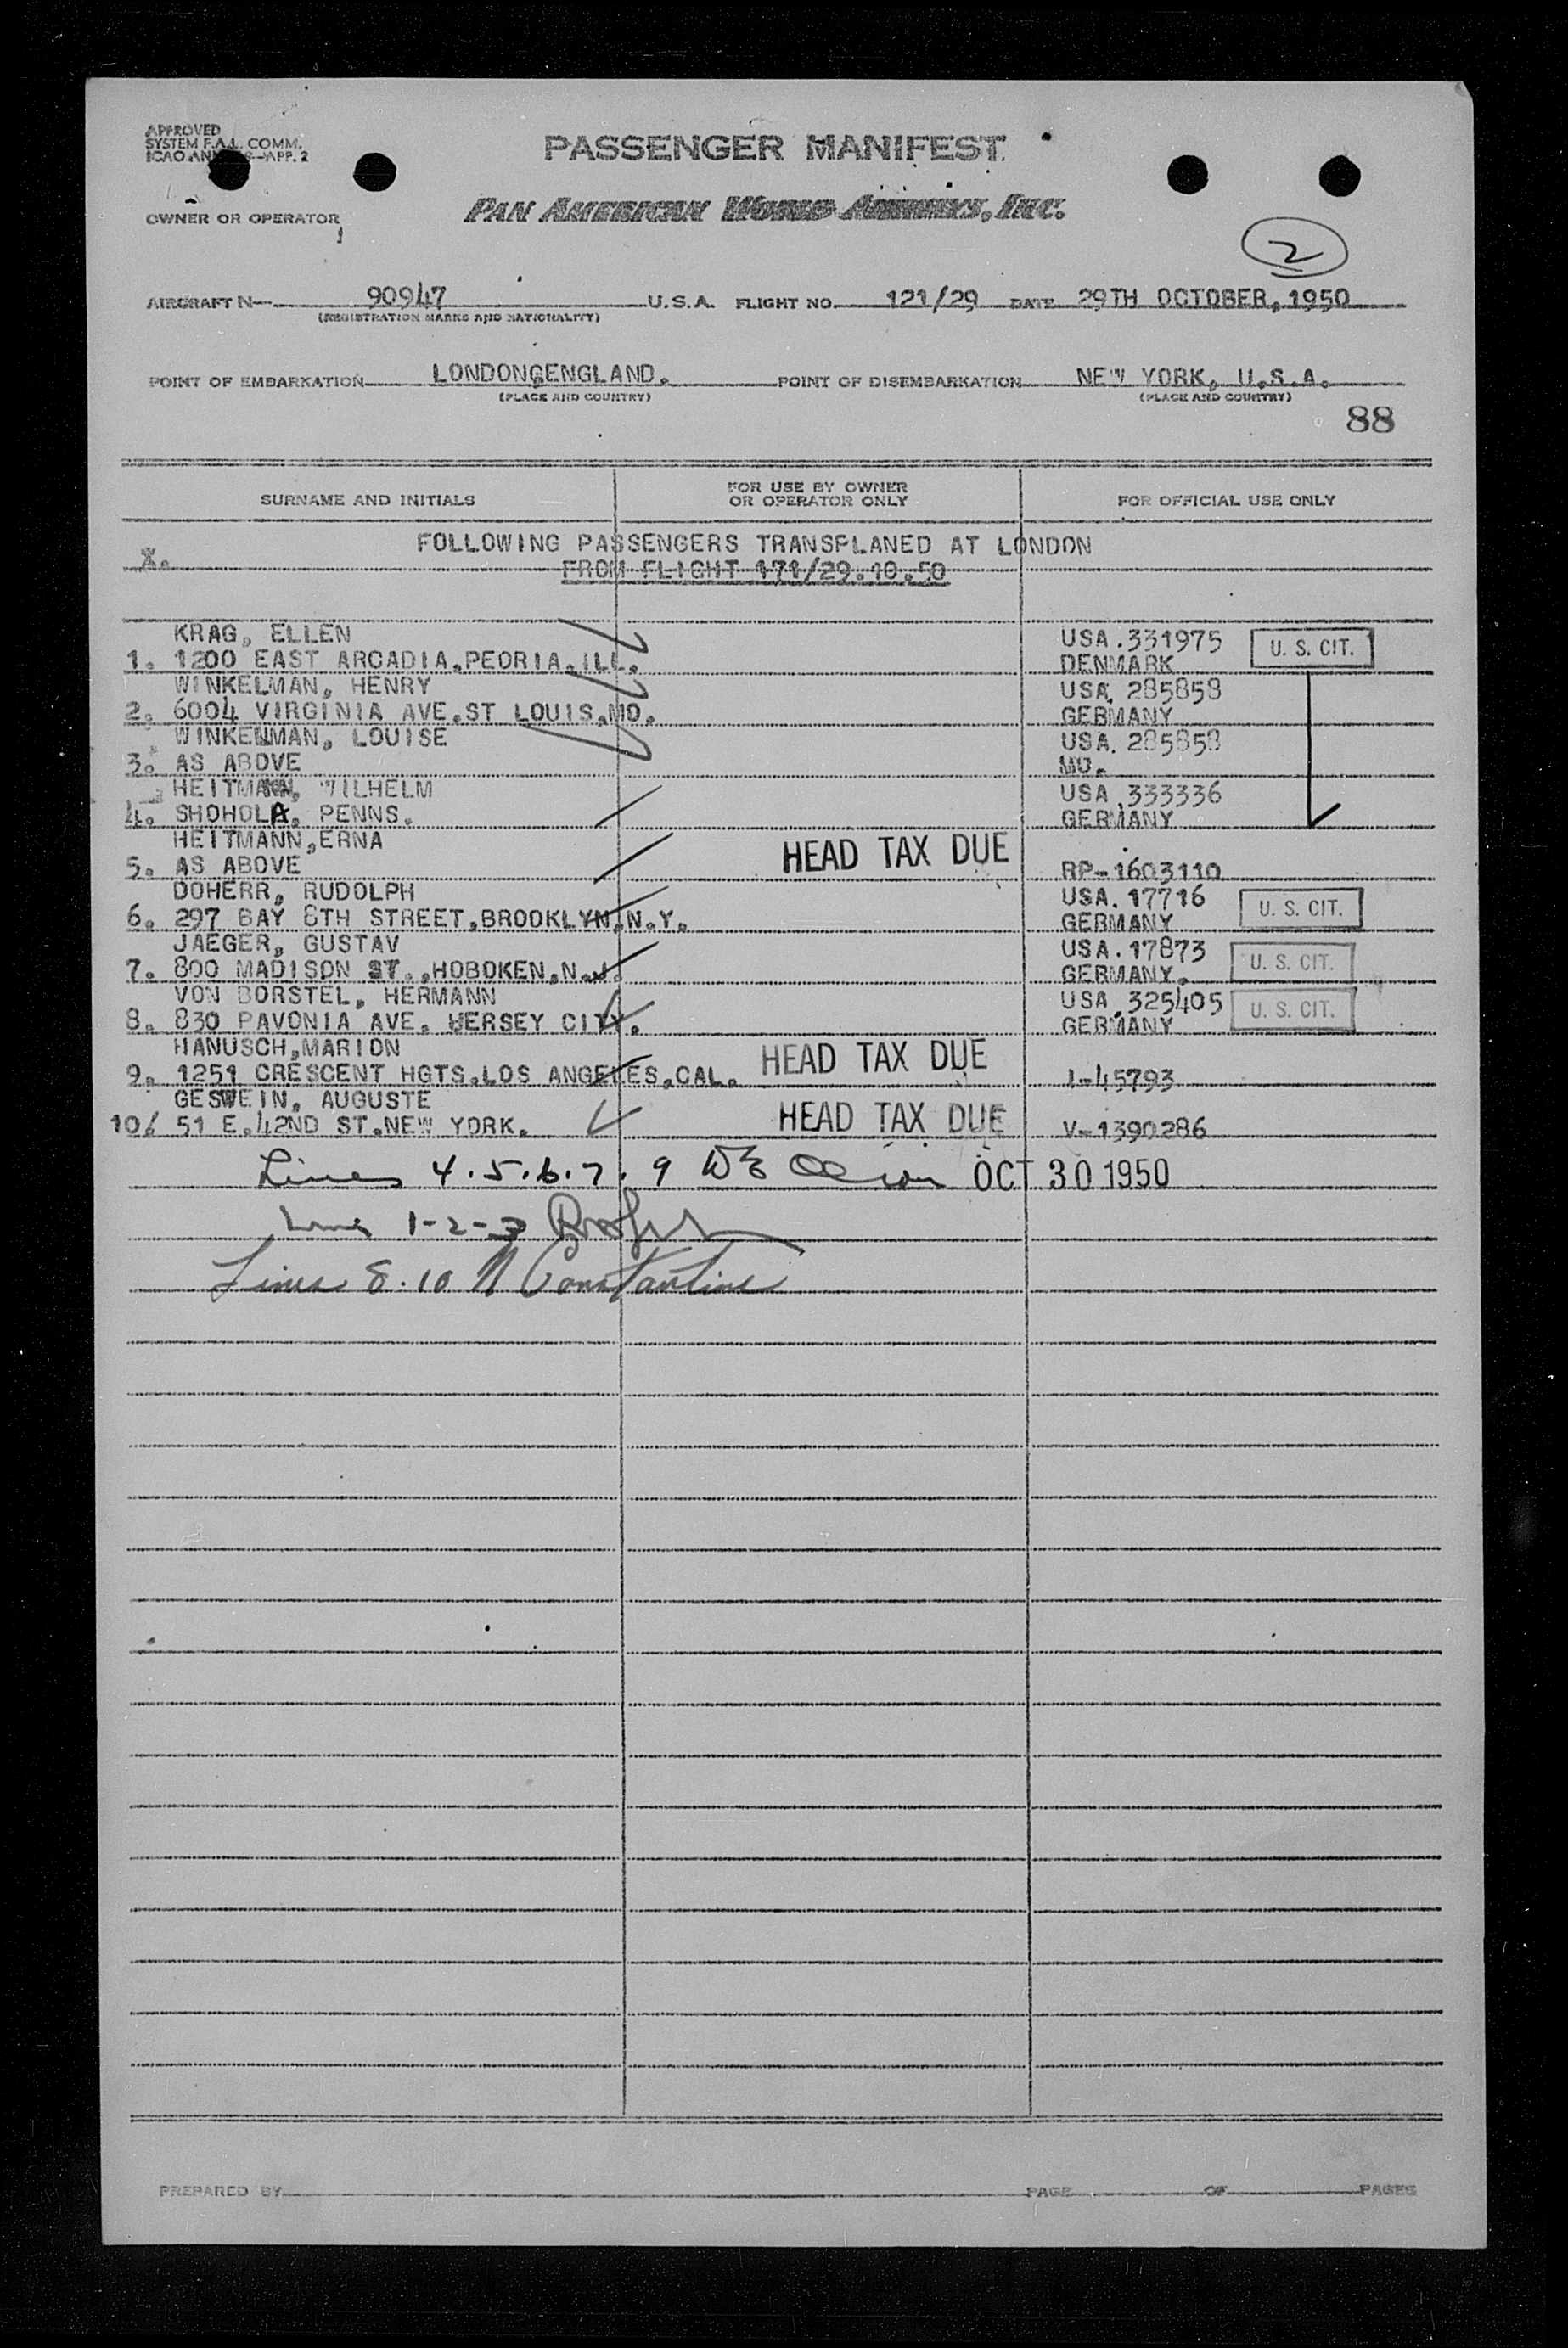 APPROVED
SYSTEM F.A.L. COMM.
ICAO ANNEX 9—APP. 2
PASSENGER MANIFEST
OWNER OR OPERATOR
PAN AMERICAN WORLD AIRWAYS, INC.
2
AIRCRAFT N— 90947 U.S.A. FLIGHT NO. 121/29 DATE 29TH OCTOBER, 1950
(REGISTRATION MARKS AND NATIONALITY)
POINT OF EMBARKATION LONDON,ENGLAND. POINT OF DISEMBARKATION NEW YORK, U.S.A.
(PLACE AND COUNTRY) (PLACE AND COUNTRY)
88
SURNAME AND INITIALS FOR USE BY OWNER OR OPERATOR ONLY FOR OFFICIAL USE ONLY
FOLLOWING PASSENGERS TRANSPLANED AT LONDON
X. FROM FLIGHT 171/29.10.50
KRAG, ELLEN USA.331975 U. S. CIT.
1. 1200 EAST ARCADIA.PEORIA.ILL. DENMARK
WINKELMAN, HENRY USA. 285858
2. 6004 VIRGINIA AVE.ST LOUIS.MO. GERMANY
WINKELMAN, LOUISE USA. 285858
3. AS ABOVE MO.
HEITMANN, WILHELM USA.333336
4. SHOHOLA, PENNS. GERMANY
HEITMANN,ERNA HEAD TAX DUE
5. AS ABOVE RP-1603110
DOHERR, RUDOLPH USA.17716 U. S. CIT.
6. 297 BAY 8TH STREET,BROOKLYN,N.Y. GERMANY
JAEGER, GUSTAV USA.17873 U. S. CIT.
7. 800 MADISON ST.,HOBOKEN,N.J. GERMANY.
VON BORSTEL, HERMANN USA.325405 U. S. CIT.
8. 830 PAVONIA AVE. JERSEY CITY. GERMANY
HANUSCH,MARION HEAD TAX DUE
9. 1251 CRESCENT HGTS.LOS ANGELES,CAL. I-45793
GESWEIN, AUGUSTE HEAD TAX DUE
10/ 51 E.42ND ST.NEW YORK. V-1390286
Lines 4.5.6.7.9 OCT 30 1950
Lines 1-2-3
Lines 8.10 N Constantine
PREPARED BY PAGE OF PAGES